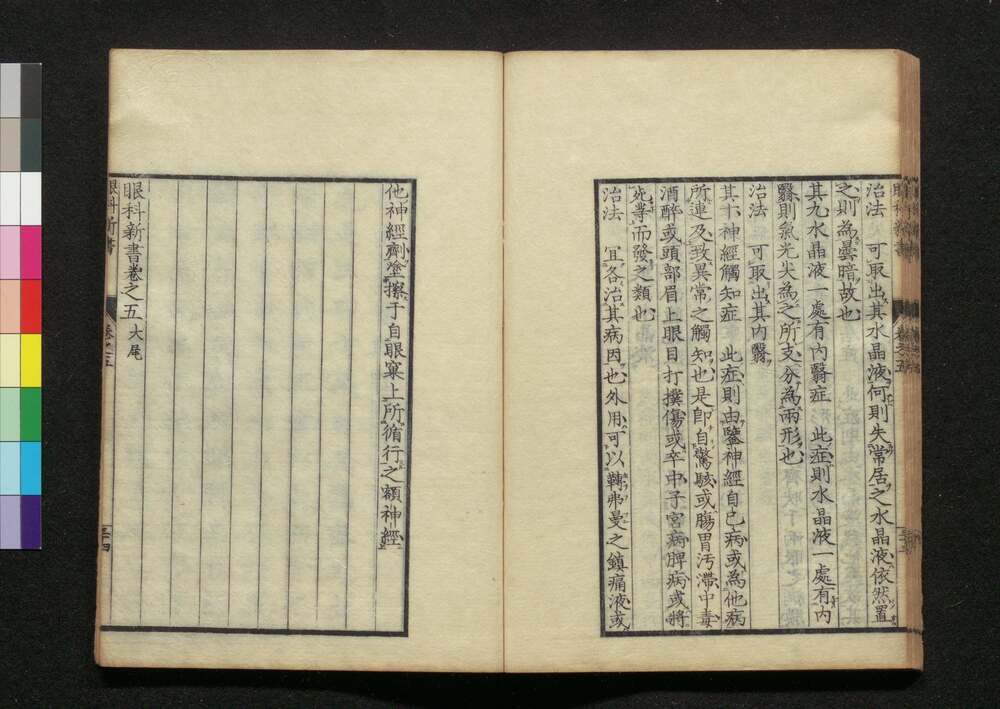 治法　可取出其水晶液何則失常居之水晶液依然置
之則為曇暗故也
其九水晶液一處有內翳症　此症則水晶液一處有內
翳則氣光尖為之所支分為兩形也
治法　可取出其内翳
其十神經觸知症　此症則由鑒神經自己病或為他病
所連及致異常之觸知也是即自驚駭或腸胃汚滯中毒
酒醉或頭部眉上眼目打撲傷或卒中子宮病脾病或將
死等而發之類也
治法　宜各治其病因也外用可以鞂弗曼之鎮痛液或
他神經劑塗擦于自眼窠上所循行之額神經
眼科新書卷之五大尾
眼科新書
卷之五
三十四